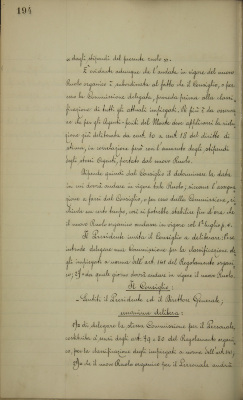 194
« degli stipendi del presente ruolo ».
È evidente adunque che l'andata in vigore del nuovo
Ruolo organico è subordinata al fatto che il Consiglio, o per
esso la Commissione delegata, proceda prima alla classi-
ficazione di tutti gli attuali impiegati. Di più è da osserva-
re che per gli Agenti-fuoco del Monte deve applicarsi la ridu-
zione già deliberata
in correlazione però con l'aumento degli stipendi
degli stessi Agenti, portato dal nuovo Ruolo.
quindi dal Consiglio il determinare la data
in cui dovrà andare in vigore tale Ruolo, siccome l'assegna-
zione a farsi dal Consiglio, o per esso dalla Commissione, ri-
chiede un certo tempo, così si potrebbe stabilire fin d'ora che
il nuovo Ruolo organico andasse in vigore col 1° luglio p.v.
Il Presidente invita il Consiglio a deliberare: Se
intende delegare una Commissione per la classificazione de-
gli impiegati a norma dell'art. 141 del Regolamento organi-
co; 2°= da quale giorno dovrà andare in vigore il nuovo Ruolo.
Il Consiglio:
Uditi il Presidente ed il Direttore Generale,
unanime delibera:
1°= di delegare la stessa Commissione per il Personale,
costituita ai sensi degli art. 29 e 30 del Regolamento organi-
co, per la classificazione degli impiegati a norma dell'art. 141;
2°= che il nuovo Ruolo organico per il Personale andrà